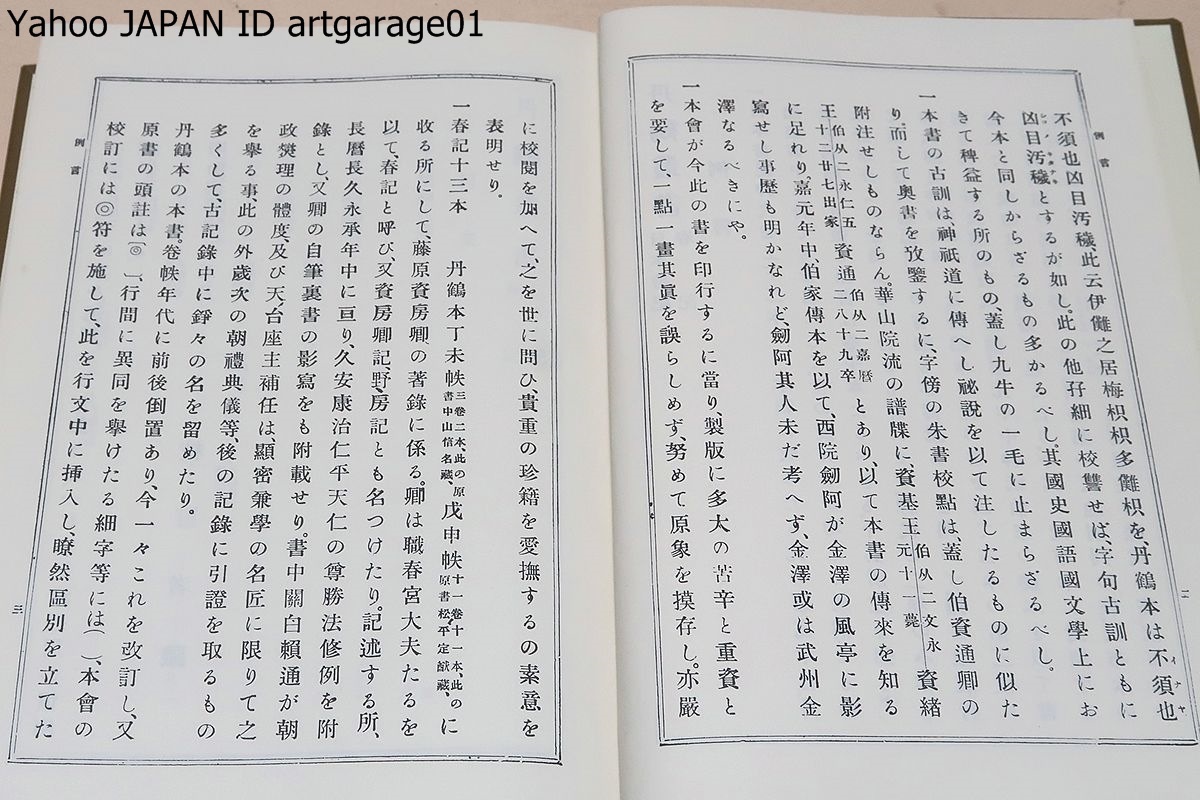 Yahoo JAPAN ID artgarage01
例言
二
不須也凶目汚穢、此云伊儺之居梅枳枳多儺枳、を、丹鶴本は不須也
凶目汚穢とするが如し。此の他孖細に校讐せば、字句古訓ともに
今本と同しからざるもの多かるべし。其國史國語國文學上にお
きて稗益する所のもの、蓋し九牛の一毛に止まらざるべし。
一本書の古訓は神祇道に傳へし祕說を以て注したるものに似た
り。而して奥書を攷鑒するに、字傍の朱書校點は、蓋し伯資通卿の
附注せしものならん。華山院流の譜牒に、資基王伯从二文永元十一薨資緒
王伯从二永仁五十二廿七出家資通伯从二嘉曆二八十九卒とあり、以て本書の傳來を知る
に足れり。嘉元年中、伯家傳本を以て、西院劒阿が金澤の風亭に影
寫せし事歷も明かなれど、劒阿其人未だ考へず、金澤或は武州金
澤なるべきにや。
一本會が今此の書を印行するに當り、製版に多大の苦辛と重資と
を要して、一點一畫其眞を誤らしめず、努めて原象を摸存し、亦嚴
例言
三
に校閱を加へて、之を世に問ひ、貴重の珍籍を愛撫するの素意を
表明せり。
一春記十三本　丹鶴本丁未帙三卷二本、此の原書中山信名藏、戊申帙十一卷十一本、此の原書松平定猷藏、に
收る所にして、藤原資房卿の著錄に係る。卿は職春宮大夫たるを
以て、春記と呼び、又資房卿記、野房記とも名つけたり。記述する所、
長曆長久永承年中に亘り、久安康治仁平天仁の尊勝法修例を附
錄とし、又卿の自筆裏書の影寫をも附載せり。書中關白賴通が朝
政爕理の體度、及び天台座主補任は、顯密兼學の名匠に限りて之
を擧る事、此の外歲次の朝禮典儀等、後の記錄に引證を取るもの
多くして、古記錄中に錚々の名を留めたり。
丹鶴本の本書。卷帙年代に前後倒置あり、今一々これを改訂し、又
原書の頭註は〔◎　〕、行間に異同を擧けたる細字等には（　）、本會の
校訂には◎符を施して、此を行文中に挿入し、瞭然區別を立てた